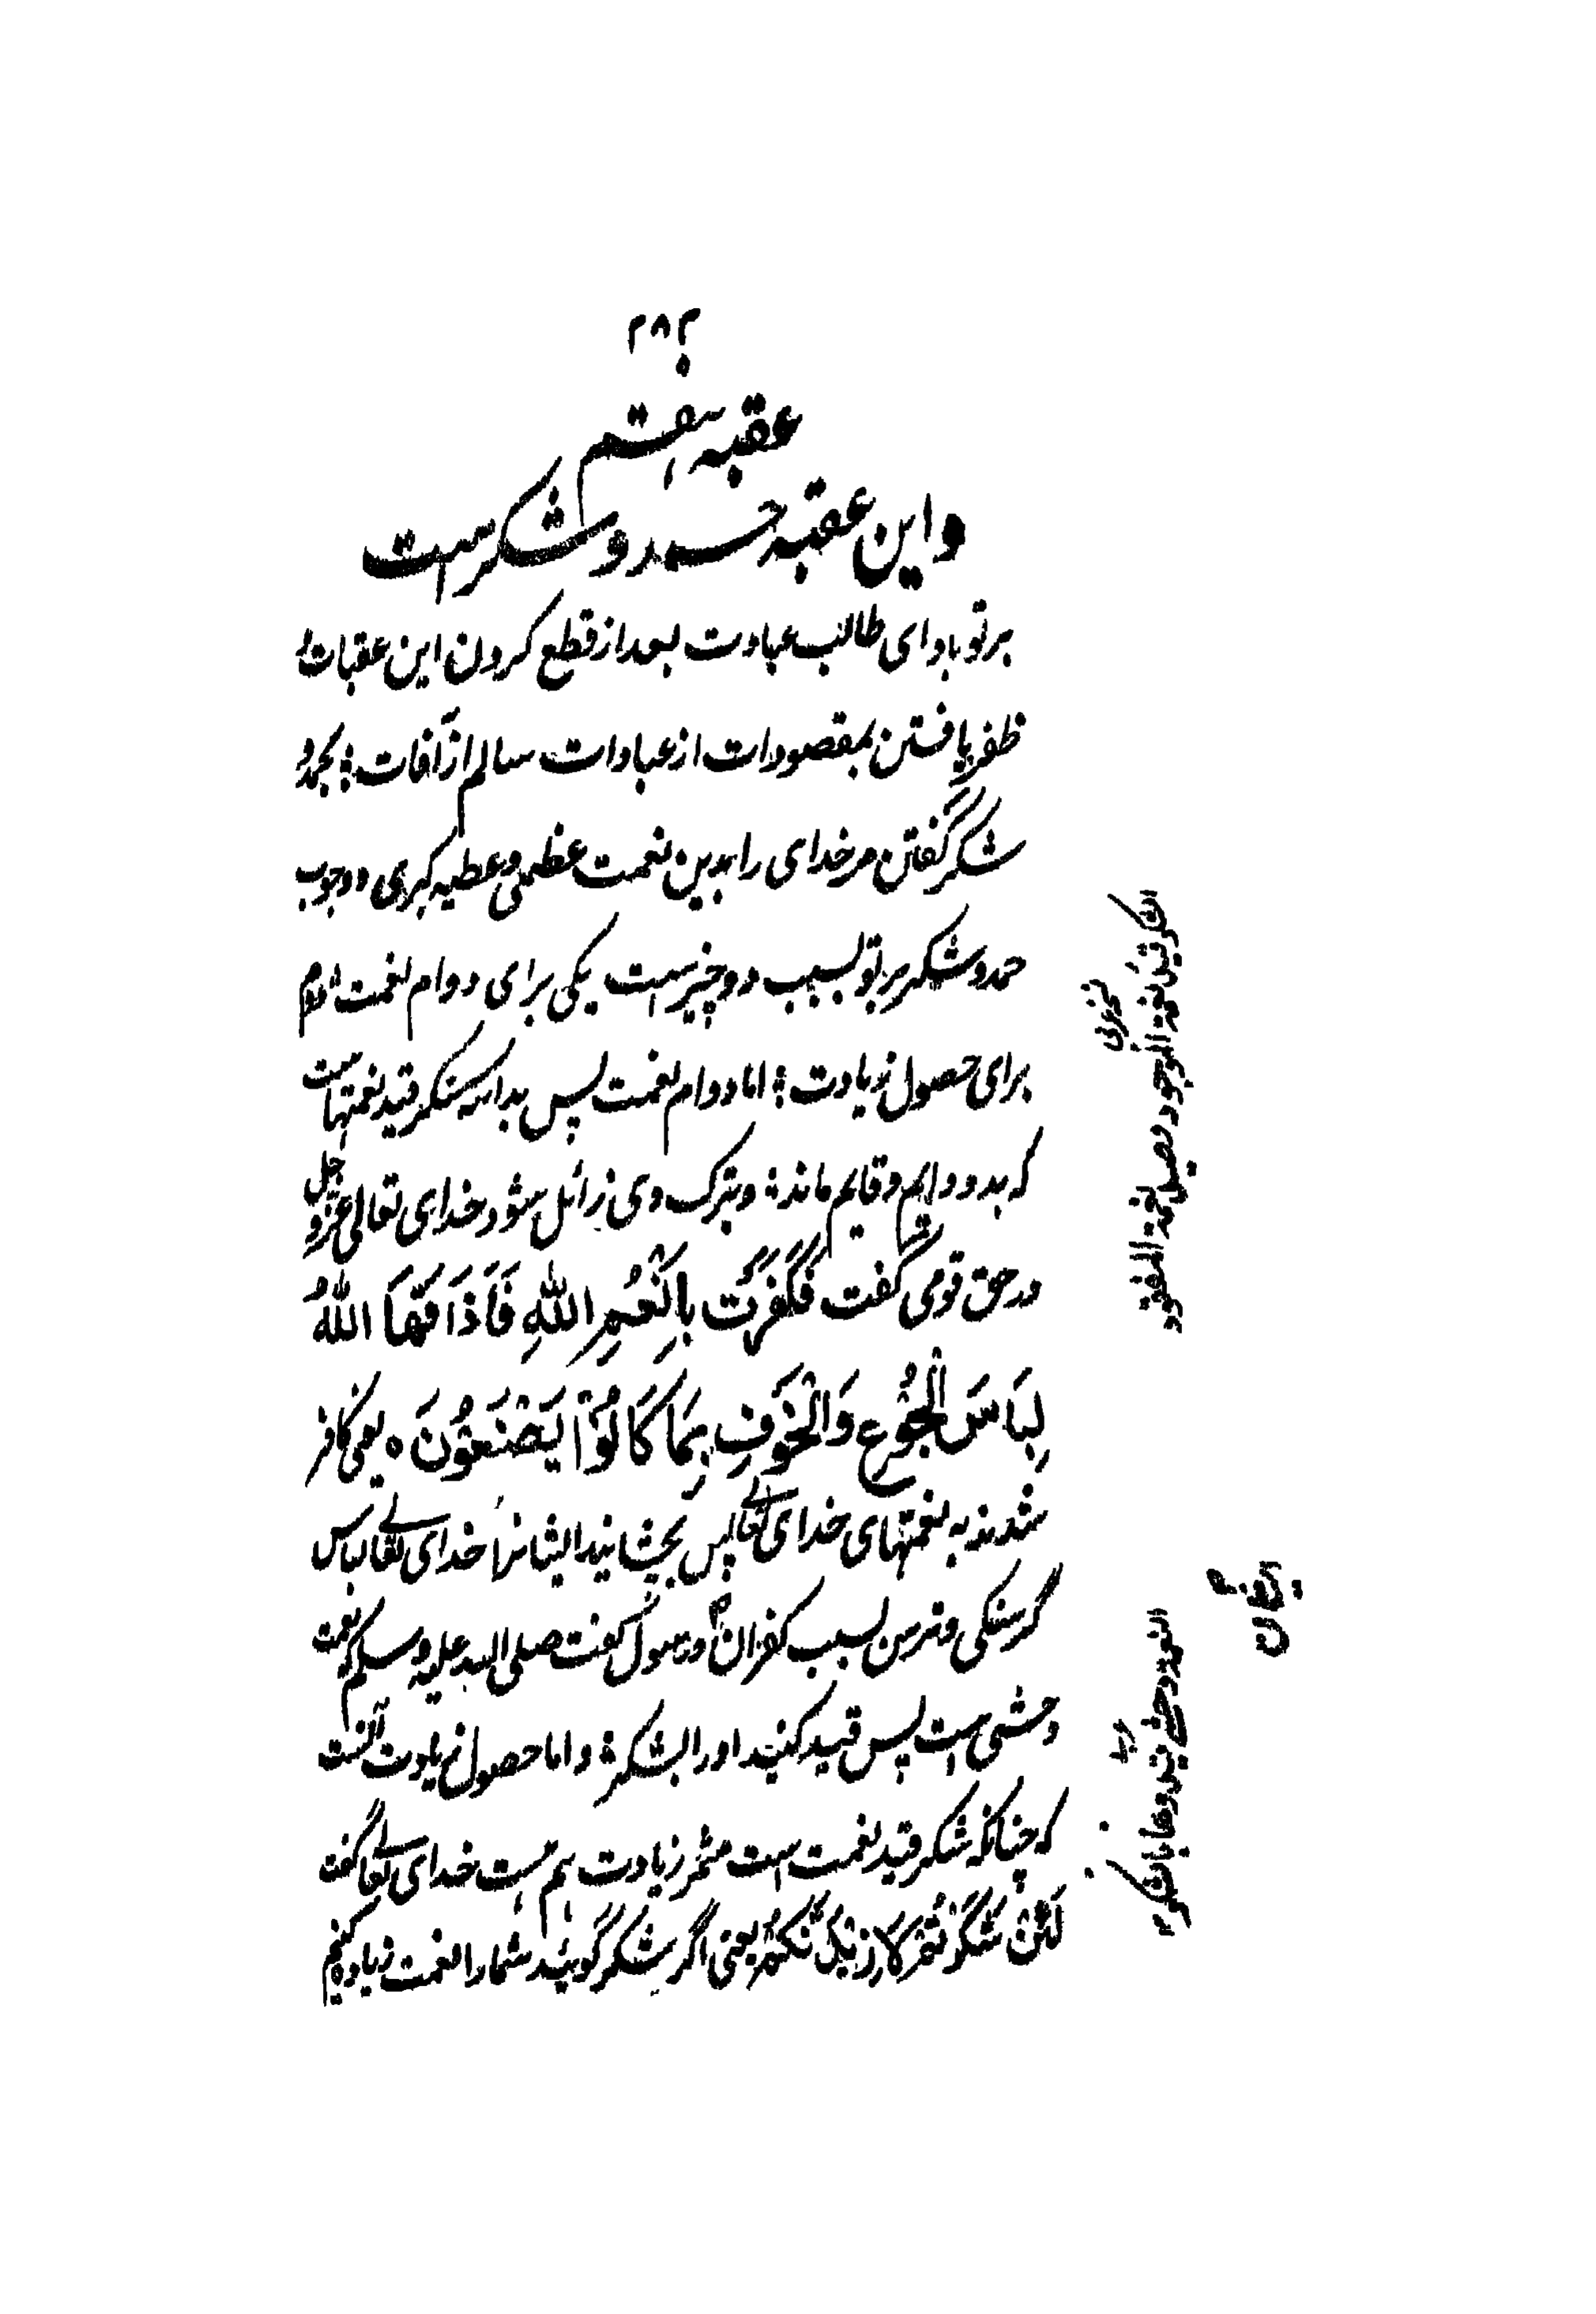 ۲۸۲
عقبه هفتم
و این عقبه حمد و شکر است
بر تو باد ای طالب عبادت بعد از قطع کردن این عقبات و
ظفر یافتن بمقصودات از عبادات سالم از آفات ؛ بحمد و
شکر گفتن مر خدای را بدین نعمت عظمی و عطیه کبری و وجوب
حمد و شکر بر تو بسبب دو چیز ست یکی برای دوام نعمت دوم
برای حصول زیادت ؛ اما دوام نعمت پس بدانکه شکر قید نعمتهاست
که بدو دایم و قایم ماند ؛ و بترک وی زائل شود خدای تعالی عز و جل
در حق قومی گفت فَكَفَرَتْ بِاَنْعُمِ اللهِ فَاَذَاقَهَا اللهُ
لِبَاسَ الْجُوْعِ وَالْخَوْفِ بِمَا كَانُوْا يَصْنَعُوْنَ ه یعنی کافر
شدند به نعمتهای خدای تعالی پس بچشانید ایشانرا خدای تعالی لباس
گرسنگی و ترس بسبب کفران و رسول گفت صلی الله علیه و سلم که نعمت
وحشی است پس قید کنید او را بشکر ؛ و اما حصول زیادت آنست
که چنانکه شکر قید نعمت است مثمر زیادت هم هست خدای تعالی گفت
لَئِنْ شَكَرْتُمْ لَاَزِيْدَنَّكُمْ یعنی اگر شکر گوئید شما را نعمت زیاده کنیم
الشکر قید نعمة الموجود و صید نعمة المفقود
النعمة وحشی قیدوها بالشکر